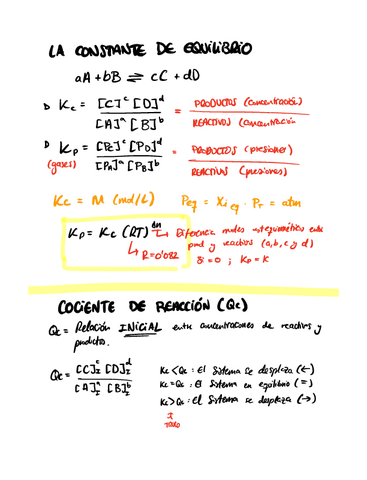 LA CONSTANTE DE EQUILIBRIO
aA + bB ⇌ cC + dD
Kc = [C]^c [D]^d / [A]^a [B]^b = PRODUCTOS (concentración) / REACTIVOS (concentración
Kp = [Pc]^c [PD]^d / [PA]^a [PB]^b = PRODUCTOS (presiones) / REACTIVOS (presiones)
(gases)
Kc = M (mol/L) Peq = Xi eq · PT = atm
Kp = Kc (RT)^Δn → Diferencia moles estequiométricos entre
prod y reactivos (a, b, c y d)
R=0'082 si = 0 ; Kp = K
COCIENTE DE REACCIÓN (Qc)
Qc = Relación INICIAL entre concentraciones de reactivos y
productos.
Qc = [C]^c_I [D]^d_I / [A]^a_I [B]^b_I
Kc < Qc : El sistema se desplaza (←)
Kc = Qc : El sistema en equilibrio (=)
Kc > Qc : El sistema se desplaza (→)